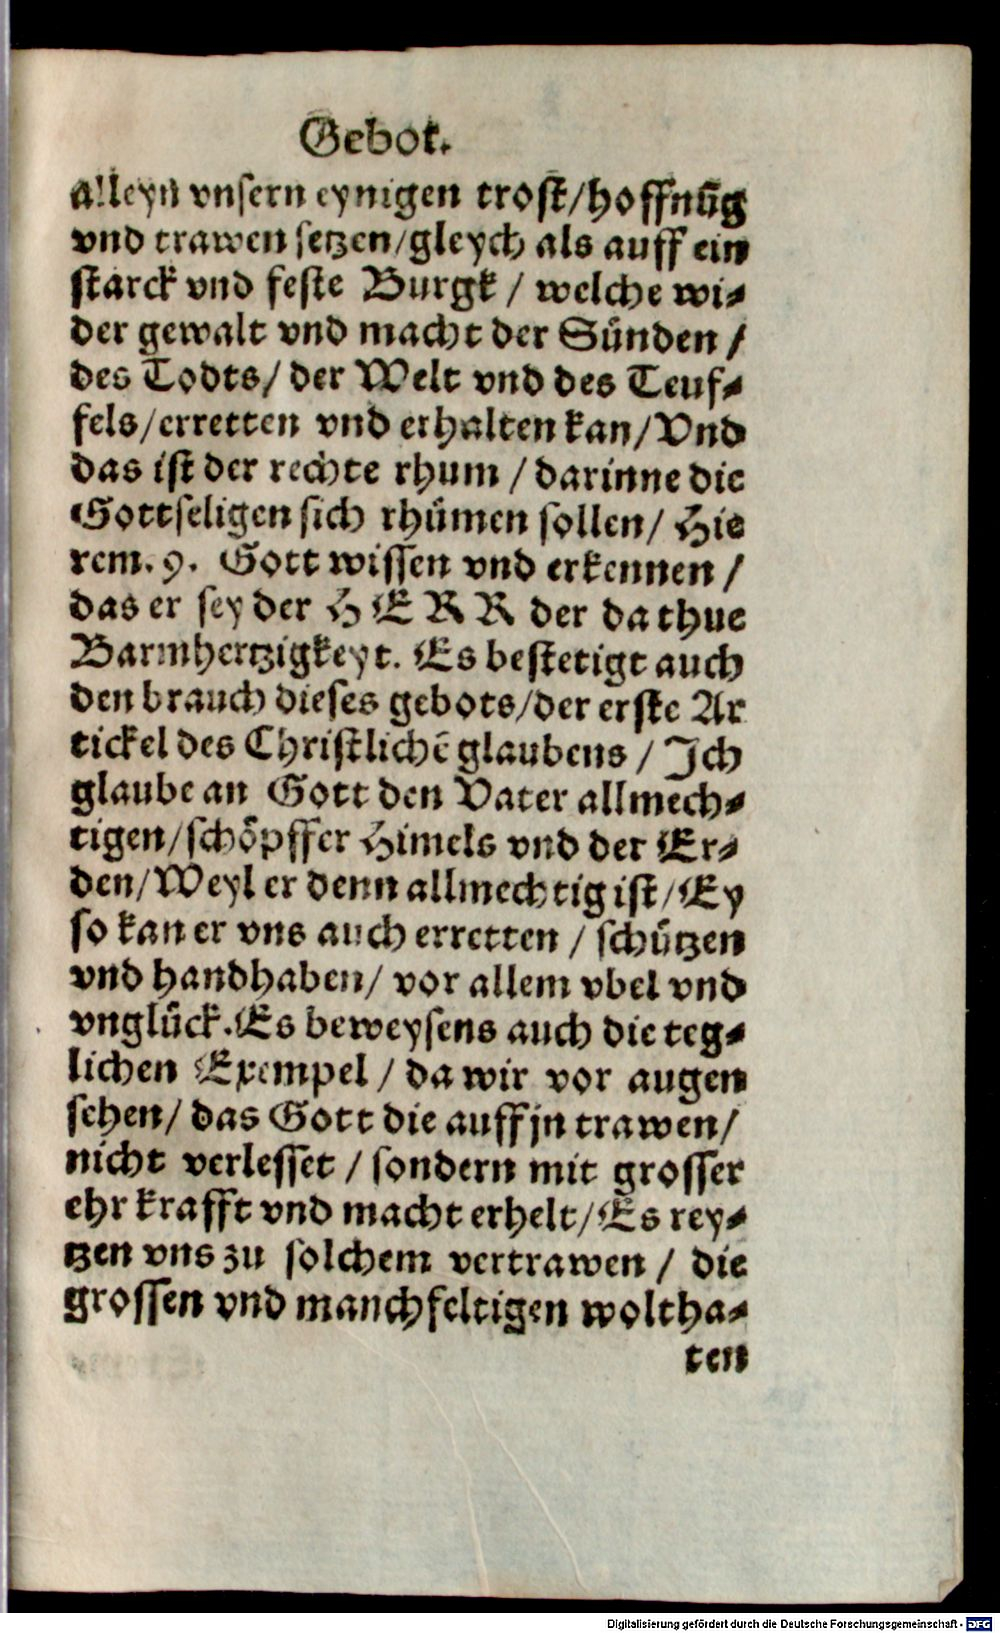 Gebot.
alleyn vnsern eynigen trost/hoffnūg
vnd trawen setzen/gleych als auff ein
starck vnd feste Burgk / welche wi⸗
der gewalt vnd macht der Sünden /
des Todts/ der Welt vnd des Teuf⸗
fels/erretten vnd erhalten kan/Vnd
das ist der rechte rhum / darinne die
Gottseligen sich rhümen sollen/ Hie
rem. 9. Gott wissen vnd erkennen /
das er sey der HERR der da thue
Barmhertzigkeyt. Es bestetigt auch
den brauch dieses gebots/der erste Ar
tickel des Christlichē glaubens / Ich
glaube an Gott den Vater allmech⸗
tigen/schöpffer Himels vnd der Er⸗
den/Weyl er denn allmechtig ist/Ey
so kan er vns auch erretten / schützen
vnd handhaben/ vor allem vbel vnd
vnglück.Es beweysens auch die teg⸗
lichen Exempel / da wir vor augen
sehen/ das Gott die auff jn trawen/
nicht verlesset / sondern mit grosser
ehr krafft vnd macht erhelt/Es rey⸗
tzen vns zu solchem vertrawen / die
grossen vnd manchfeltigen woltha⸗
ten
Digitalisierung gefördert durch die Deutsche Forschungsgemeinschaft - DFG